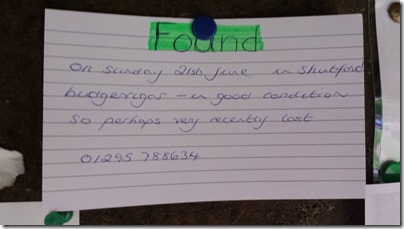 Found
On Sunday 21st June in Shutford
budgerigar - in good condition
So perhaps very recently lost
01295 788634